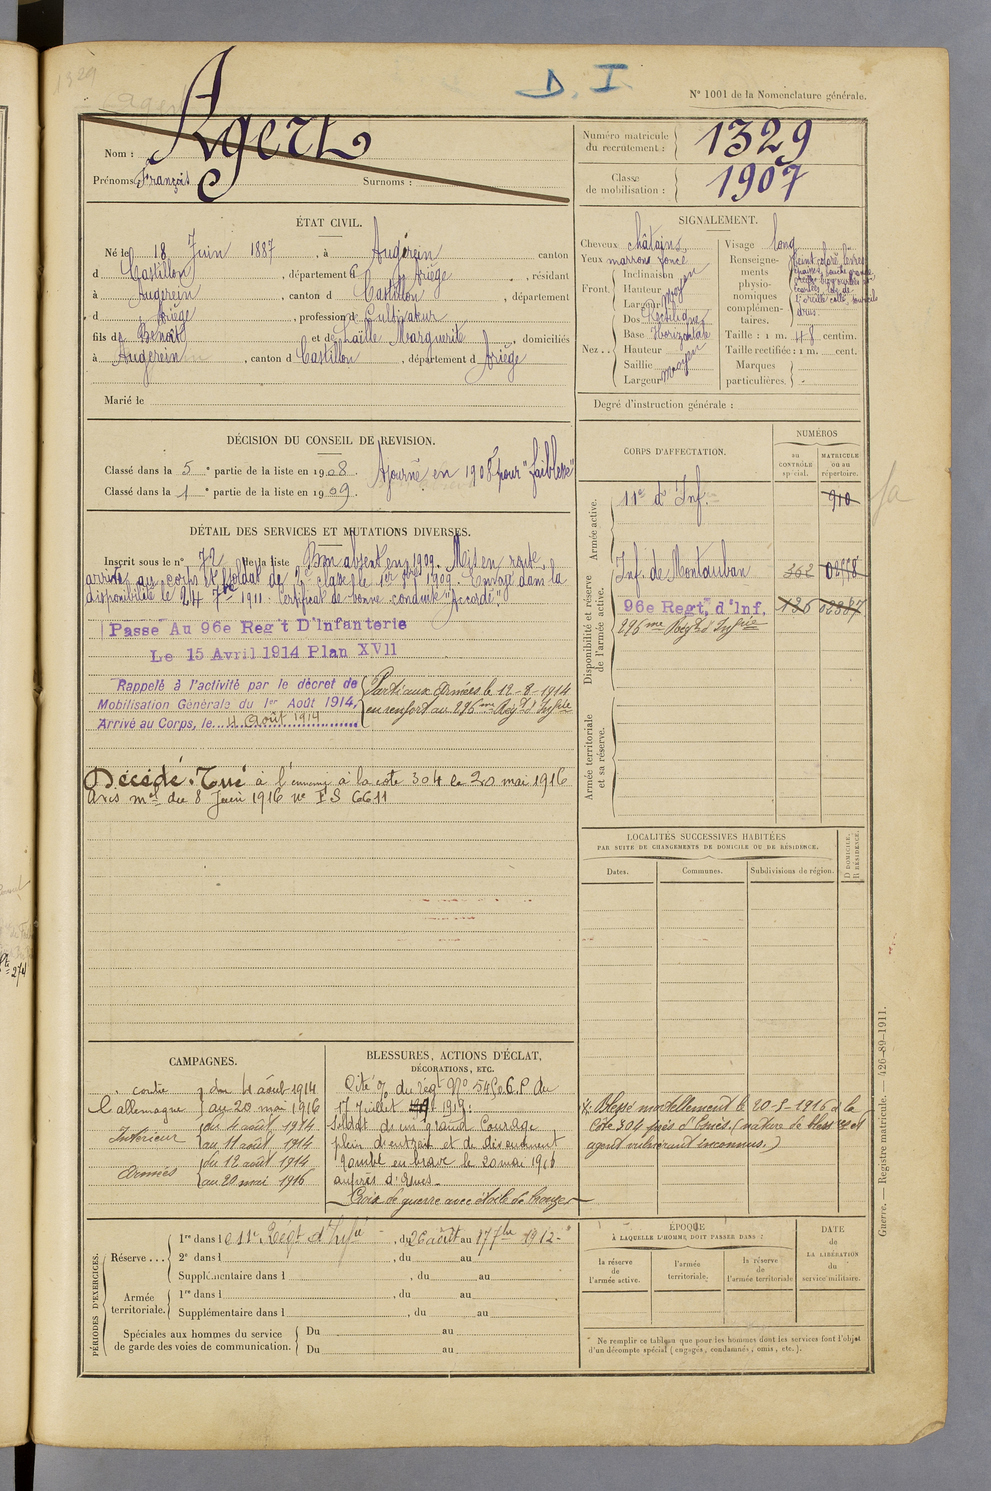 1329
D. I
N° 1001 de la Nomenclature générale.
Nom : Agert
Prénoms : François Surnoms :
Numéro matricule du recrutement : 1329
Classe de mobilisation : 1907
ÉTAT CIVIL.
Né le 18 Juin 1887, à Augérein canton
d Castillon, département d l'Ariège, résidant
à Augerein, canton d Castillon, département
d Ariège, profession de Cultivateur
fils de Benoît et de Marguerite, domiciliés
à Augerein, canton d Castillon, département d Ariège
Marié le
SIGNALEMENT.
Cheveux châtains,
Yeux marrons foncé
Front. Inclinaison
Hauteur moyen
Largeur
Nez .. Dos Rectiligne
Base Horizontale
Hauteur
Saillie moyen
Largeur
Visage long
Renseignements physionomiques complémentaires.
Taille : 1 m. 48 centim.
Taille rectifiée : 1 m. cent.
Marques particulières.
Degré d'instruction générale :
DÉCISION DU CONSEIL DE REVISION.
Classé dans la 5e partie de la liste en 1908. Ajourné en 1908 pour "faiblesse"
Classé dans la 1e partie de la liste en 1909
DÉTAIL DES SERVICES ET MUTATIONS DIVERSES.
Inscrit sous le n° 72 de la liste Bon absent en 1909. Mis en route,
arrivé au corps et soldat de 2e classe le 1909. Envoyé dans la
disponibilité le 24 7bre 1911. Certificat de bonne conduite "Accordé".
Passé Au 96e Reg't D'Infanterie
Le 15 Avril 1914 Plan XVII
Rappelé à l'activité par le décret de
Mobilisation Générale du 1er Août 1914,
Arrivé au Corps, le 4 Août 1914
Parti aux Armées le 12-8-1914
en renfort au 296me Régt d'Inf
Décédé. Tué à l'ennemi à la cote 304 le 20 mai 1916
Avis mel du 8 Juin 1916 n° F S 6611
CORPS D'AFFECTATION.
NUMÉROS
au CONTRÔLE spécial.
MATRICULE ou au répertoire.
Armée active.
11e d'Inf. 910
Disponibilité et réserve de l'armée active.
Inf. de Montauban 362
96e Regt, d'Inf. 126 02887
296me Régt d'Inf
Armée territoriale et sa réserve.
LOCALITÉS SUCCESSIVES HABITÉES
PAR SUITE DE CHANGEMENTS DE DOMICILE OU DE RÉSIDENCE.
Dates. Communes. Subdivisions de région. D DOMICILE. R RÉSIDENCE.
CAMPAGNES.
contre l'allemagne du 4 août 1914
au 20 mai 1916
Intérieur du 4 août 1914
au 11 août 1914
Armées du 12 août 1914
au 20 mai 1916
BLESSURES, ACTIONS D'ÉCLAT,
DÉCORATIONS, ETC.
Cité O/ du Régt N° du
17 Juillet 1919:
Soldat de un grand Courage
plein d'entrain et de dévouement
tombé en brave le 20 mai 1916
auprès d'Esnes.
Croix de guerre avec étoile de bronze
Blessé mortellement le 20-5-1916 à la
Cote 304 près d'Esnes. (nature de blessure et
agent vulnérant inconnus.)
PÉRIODES D'EXERCICES.
Réserve ... 1re dans le 11e Régt d'Inf, du 26 août au 17 7bre 1912
2e dans l , du au
Supplémentaire dans l , du au
Armée territoriale. 1re dans l , du au
Supplémentaire dans l , du au
Spéciales aux hommes du service de garde des voies de communication. Du au
Du au
ÉPOQUE
À LAQUELLE L'HOMME DOIT PASSER DANS :
la réserve de l'armée active.
l'armée territoriale.
la réserve de l'armée territoriale
DATE DE LA LIBÉRATION du service militaire.
Ne remplir ce tableau que pour les hommes dont les services font l'objet
d'un décompte spécial (engagés, condamnés, omis, etc.).
Guerre. — Registre matricule. — 426-89-1911.